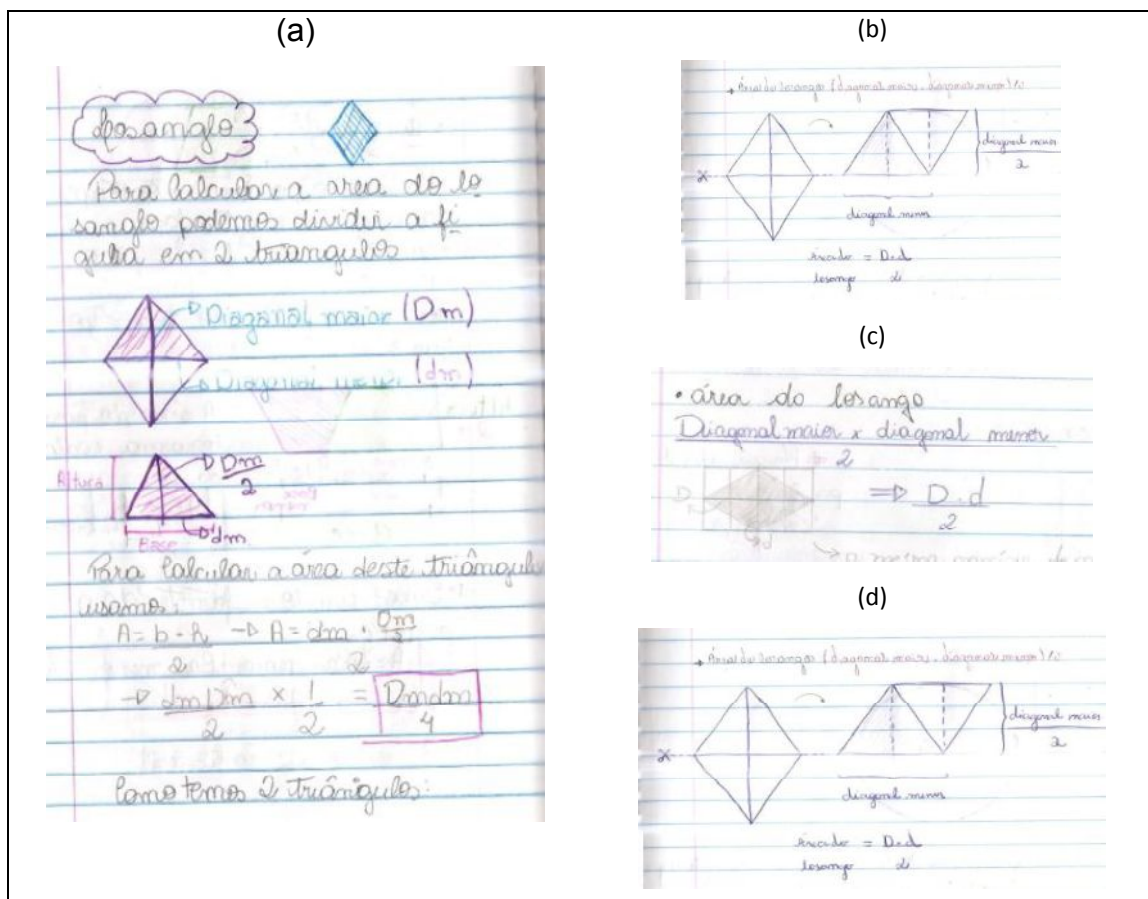 (a)
Losanglo
Para Calcular a area do lo
sanglo podemos dividir a fi
gura em 2 triangulos
Diagonal maior (Dm)
Diagonal menor (dm)
Altura
Dm
2
Base
dm
Para Calcular a área deste triângulo
usamos:
A = b · h → A = dm · Dm/2
2 2
→ dm Dm × 1 = Dmdm
2 2 4
Como temos 2 triângulos:
(b)
Área do losango (diagonal maior . diagonal menor)/2
diagonal maior
2
diagonal menor
área do = D.d
losango 2
(c)
• área do losango
Diagonal maior x diagonal menor
2
D
⇒ D.d
2
d
(d)
Área do losango (diagonal maior . diagonal menor)/2
diagonal maior
2
diagonal menor
área do = D.d
losango 2